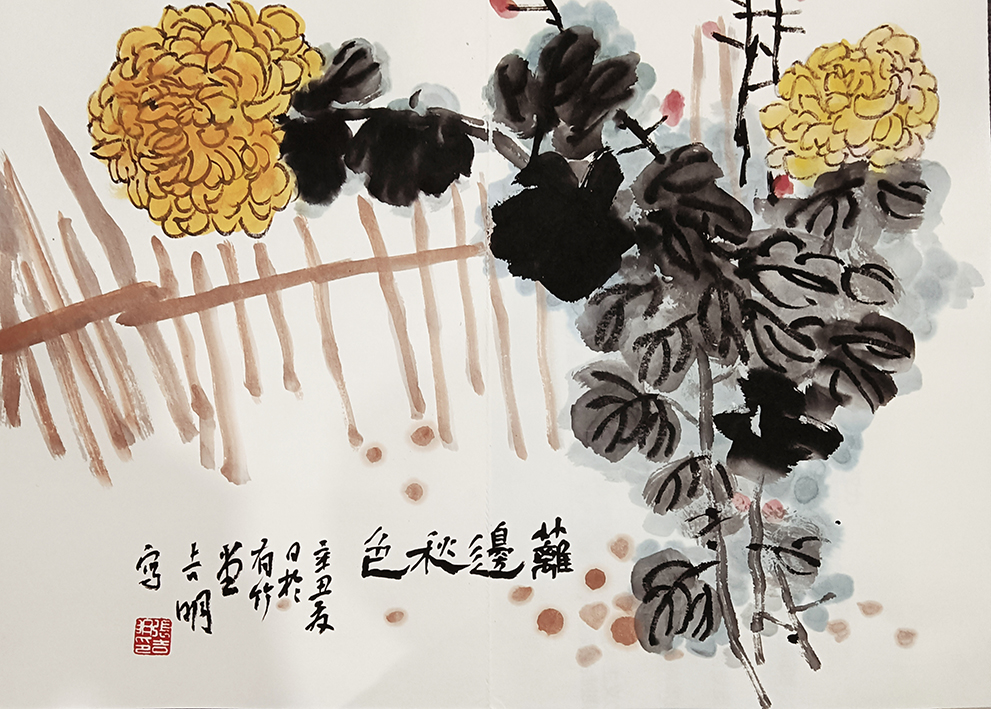 籬邊秋色
辛丑夏
日於
有竹
堂
吉明
寫